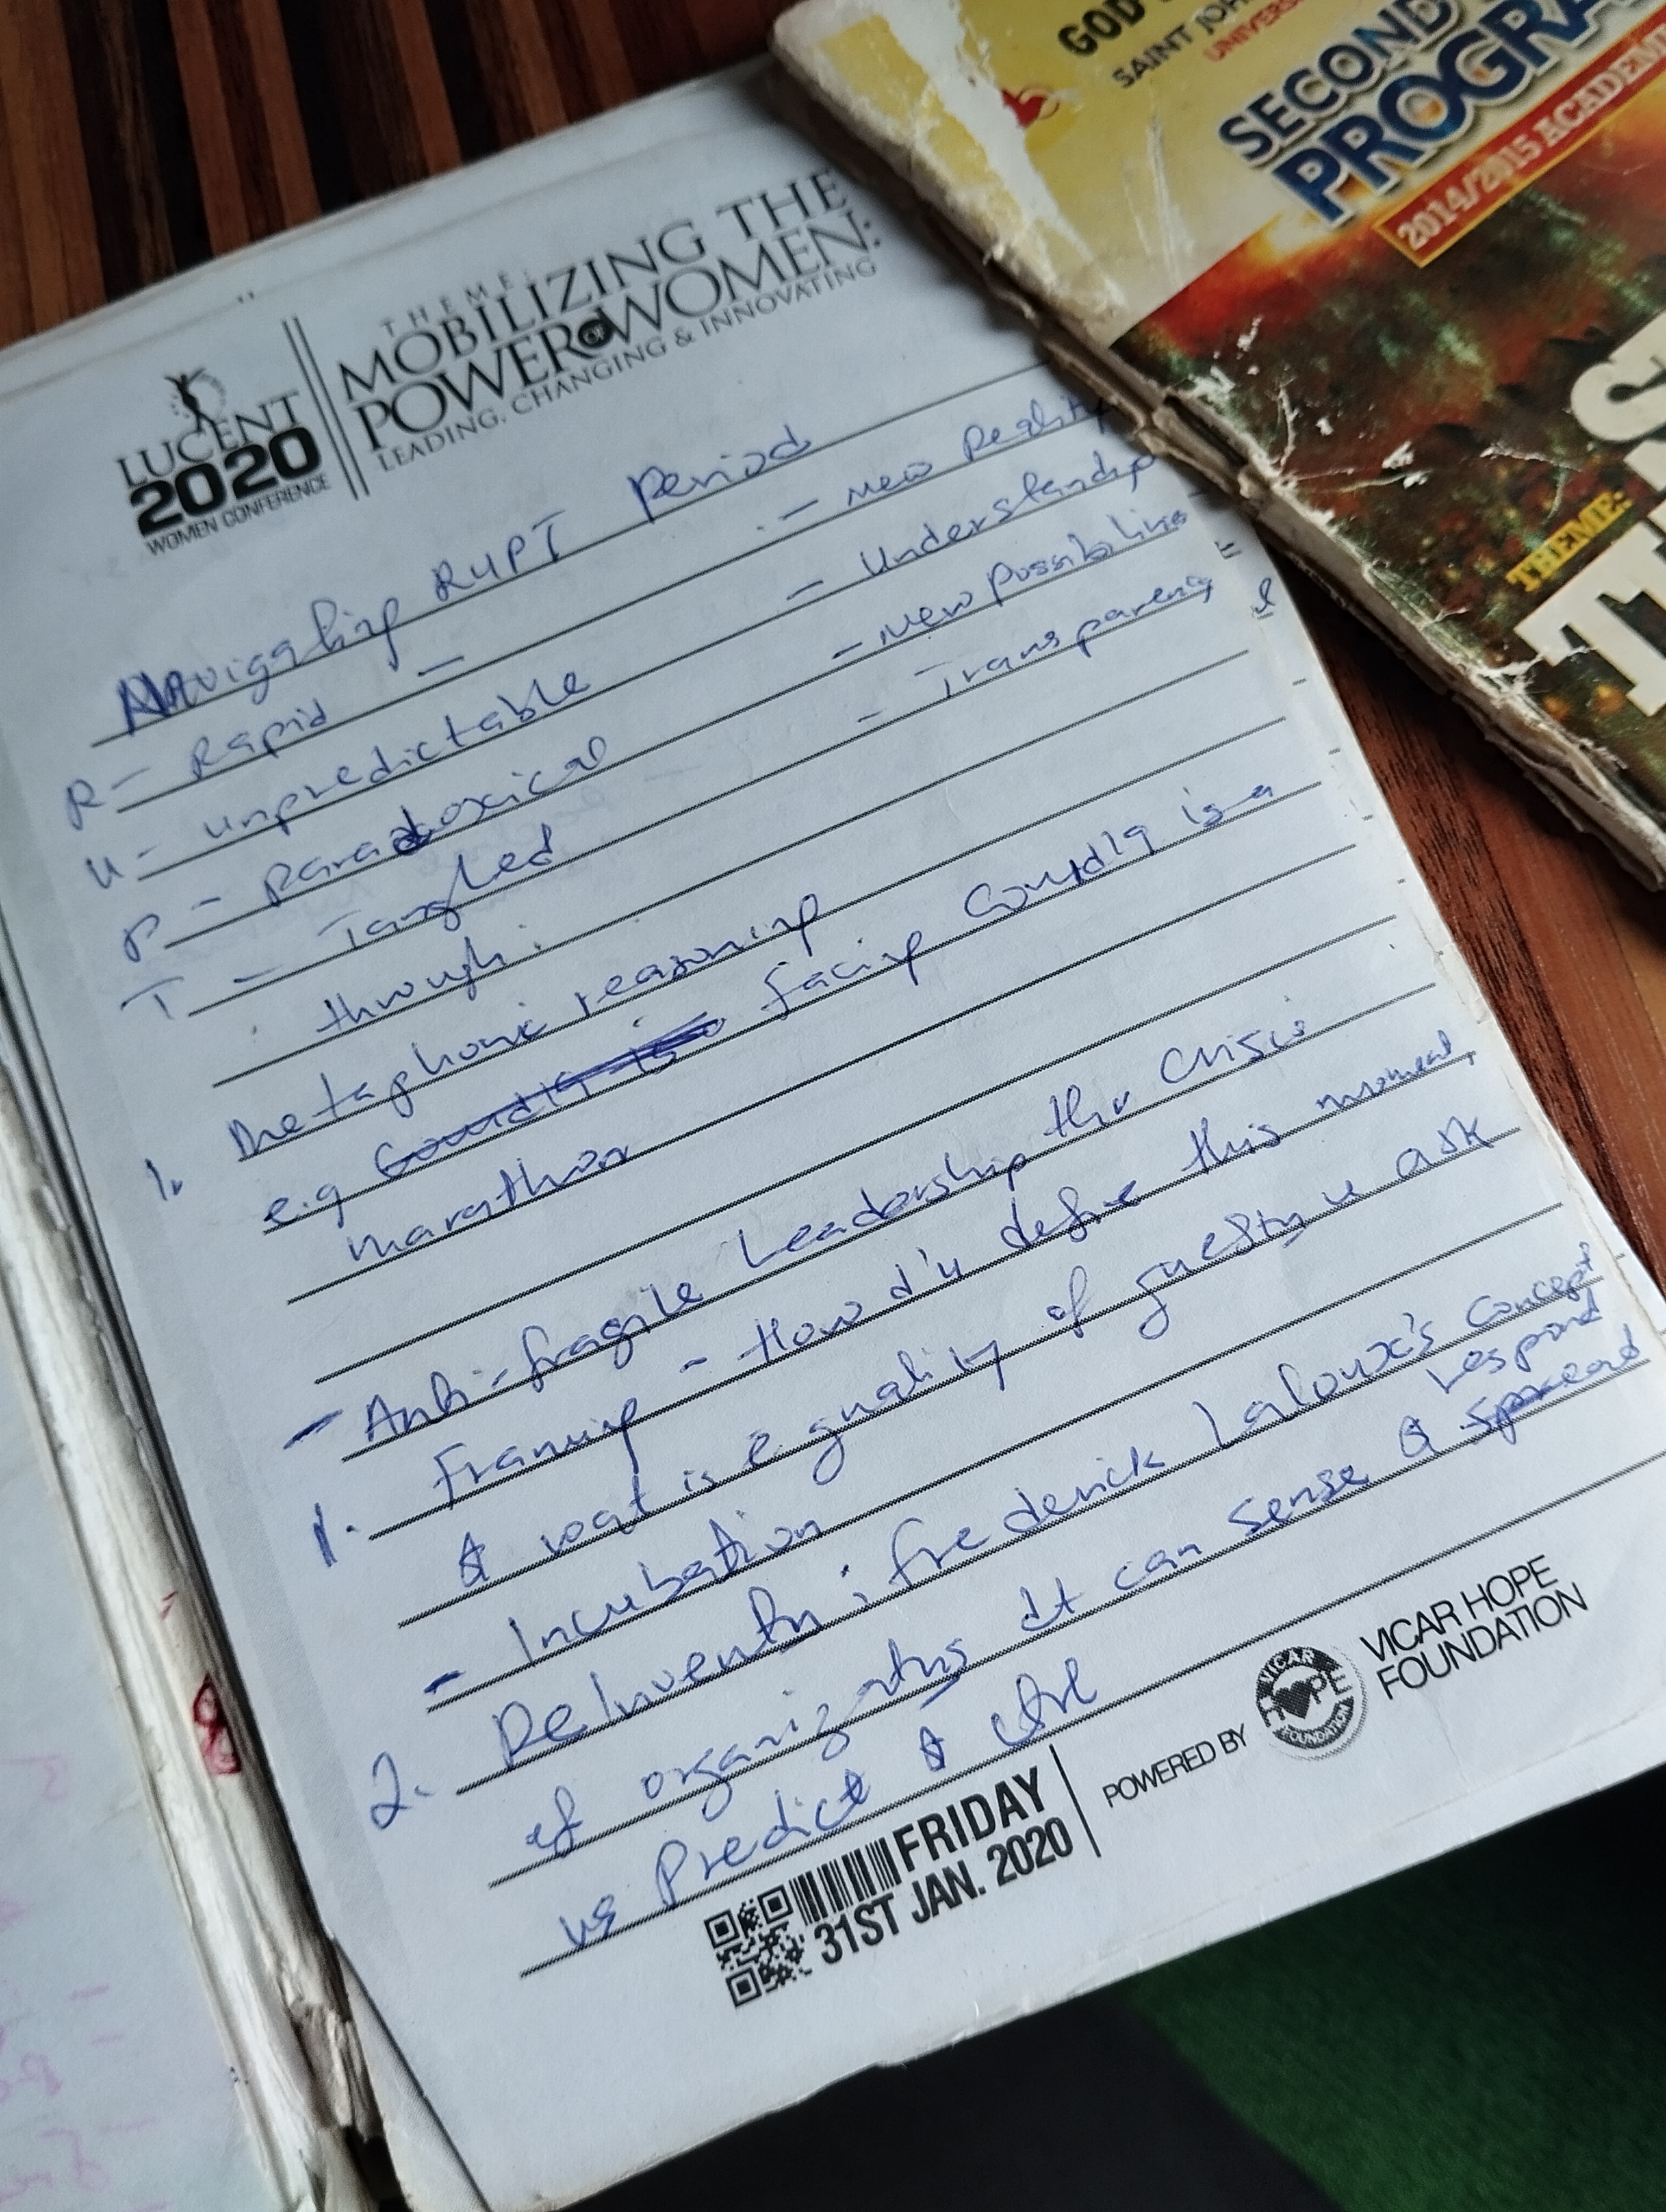 LUCENT
2020
WOMEN CONFERENCE
THEME:
MOBILIZING THE
POWER OF WOMEN:
LEADING, CHANGING & INNOVATING
Navigating RUPT Period
R - Rapid - - new Reality
U - unpredictable - Understandg
P - Paradoxical - New Possibilities
T - Tangled - Transparency &
through:
1. Metaphoric reasoning
e.g Covid 19 is facing Covid 19 is a
marathon
- Anti-fragile Leadership thru Crisis
1. Framing - How d'u define this moment,
& wat is e quality of questn u ask
- Incubation
2. ReInventn: frederick Laloux's concept
of organizatns dt can sense & spread respond
vs Predict & ctrl
FRIDAY
31ST JAN. 2020
POWERED BY
VICAR HOPE FOUNDATION
VICAR HOPE
FOUNDATION
GOD'S
SAINT JOH
UNIVERS
SECOND
PROGRA
2014/2015 ACADEM
THEME: